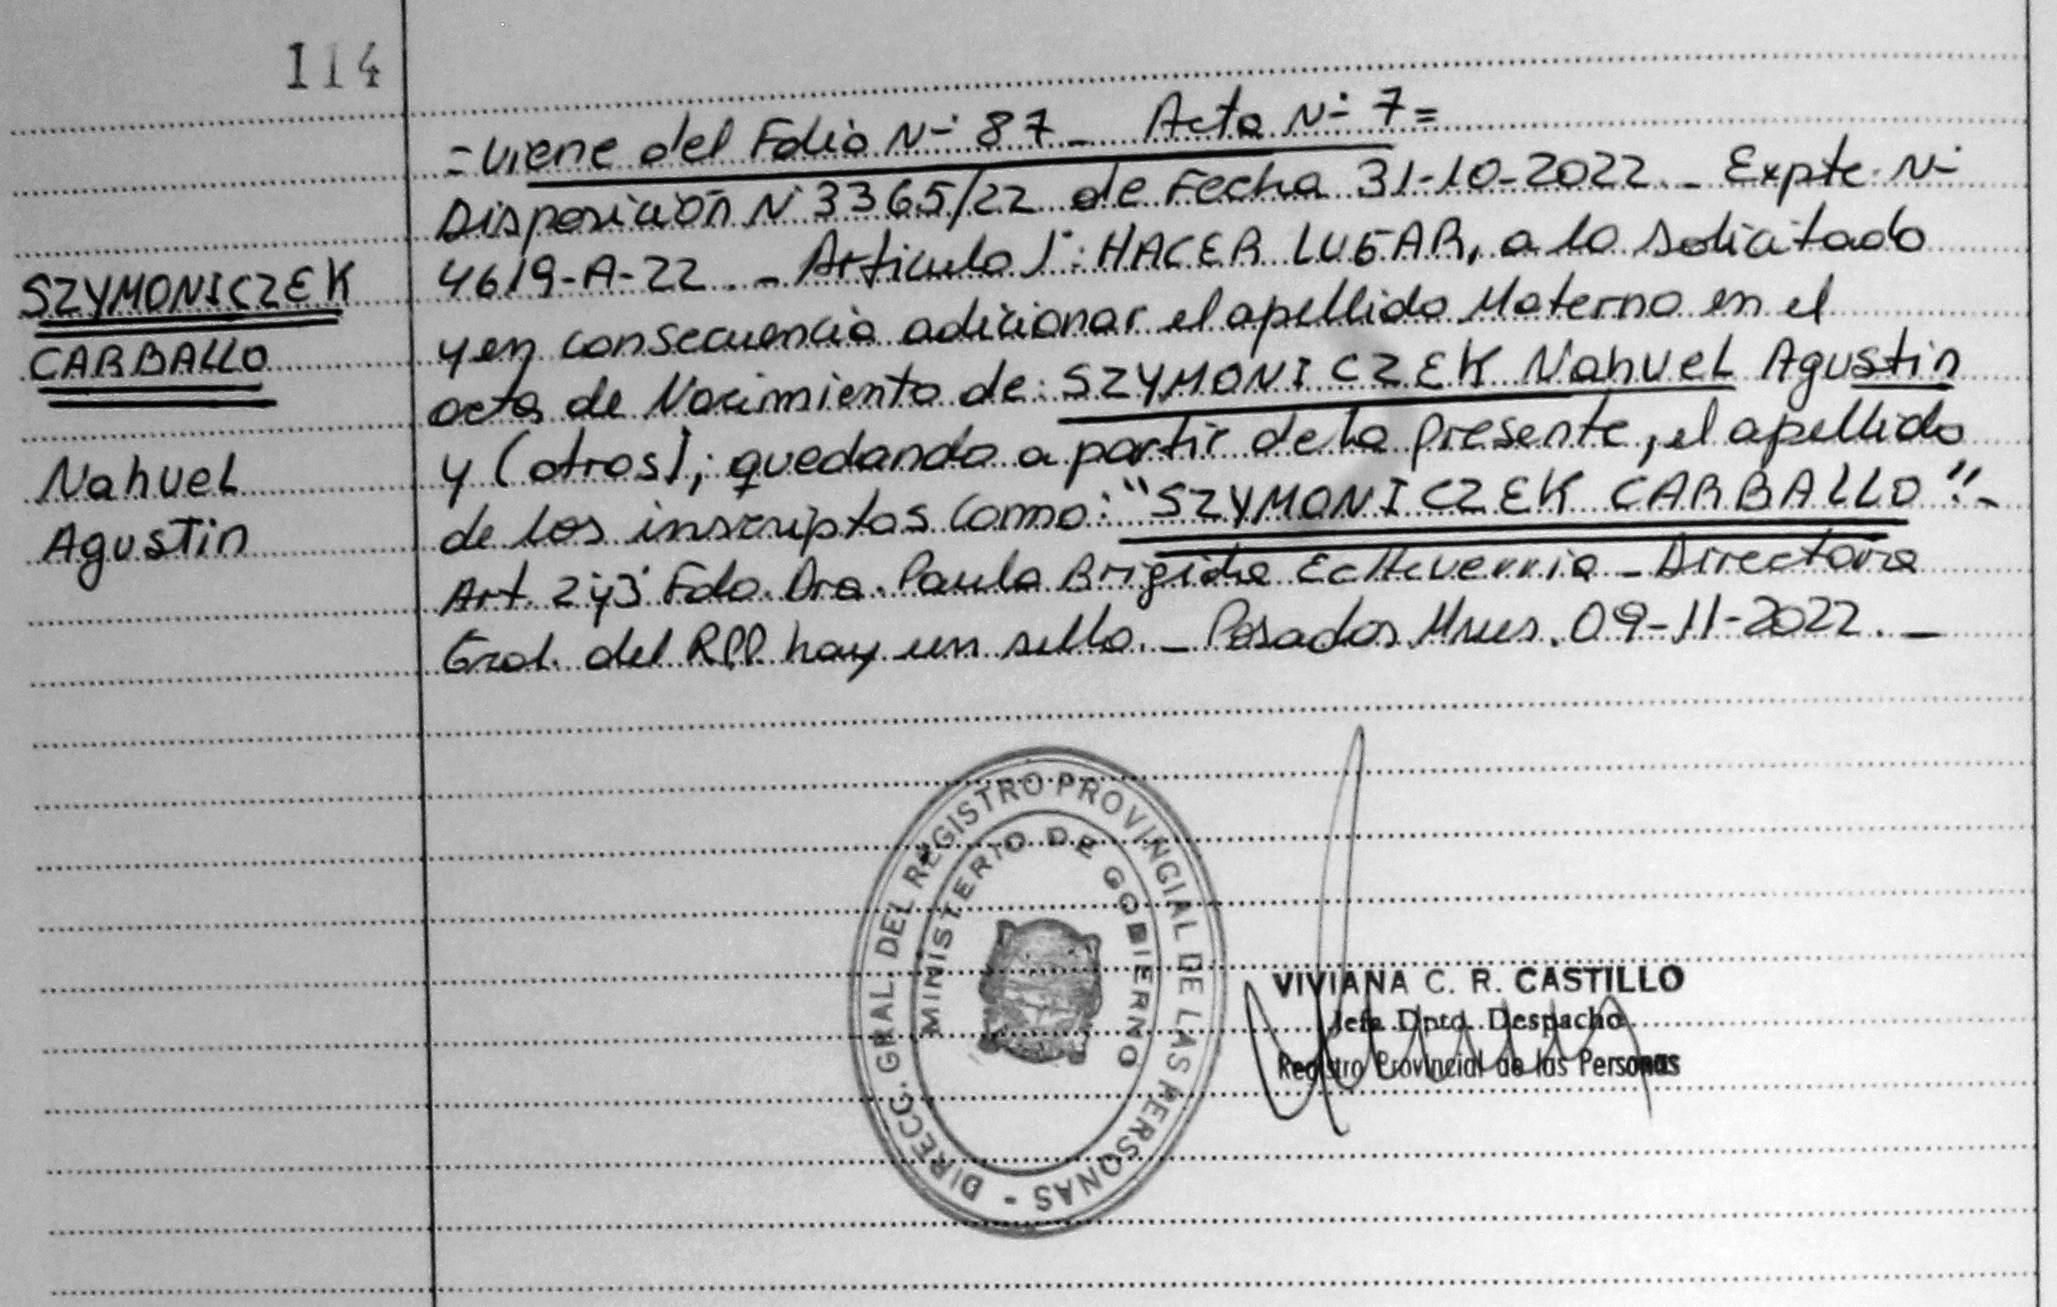 114
=Viene del Folio N- 87_ Acta N- 7=
Disposición N 3365/22 de Fecha 31-10-2022._ Expte. N-
4619-A-22._ Articulo 1°: HACER LUGAR, a lo solicitado
y en consecuencia adicionar el apellido Materno en el
acta de Nacimiento de: SZYMONICZEK Nahuel Agustin
y (otros); quedando a partir de la presente, el apellido
de los inscriptos como: "SZYMONICZEK CARBALLO"._
Art. 2 y 3 Fdo. Dra. Paula Brigida Echeverria _ Directora
Gral. del RPP. hay un sello._ Posadas Mnes. 09-11-2022._
SZYMONICZEK
CARBALLO
Nahuel
Agustin
DIRECC. GRAL. DEL REGISTRO PROVINCIAL DE LAS PERSONAS -
MINISTERIO DE GOBIERNO
VIVIANA C. R. CASTILLO
Jefa Dpto. Despacho
Registro Provincial de las Personas